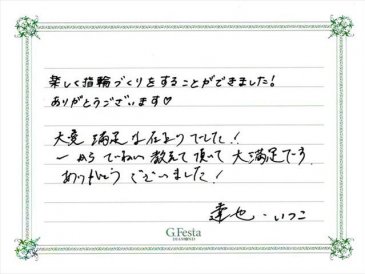 楽しく指輪づくりをすることができました!
ありがとうございます♡
大変満足な仕上りでした!
一からていねい教えて頂いて大満足です
ありがとうございました!
達也・いつこ
G.Festa